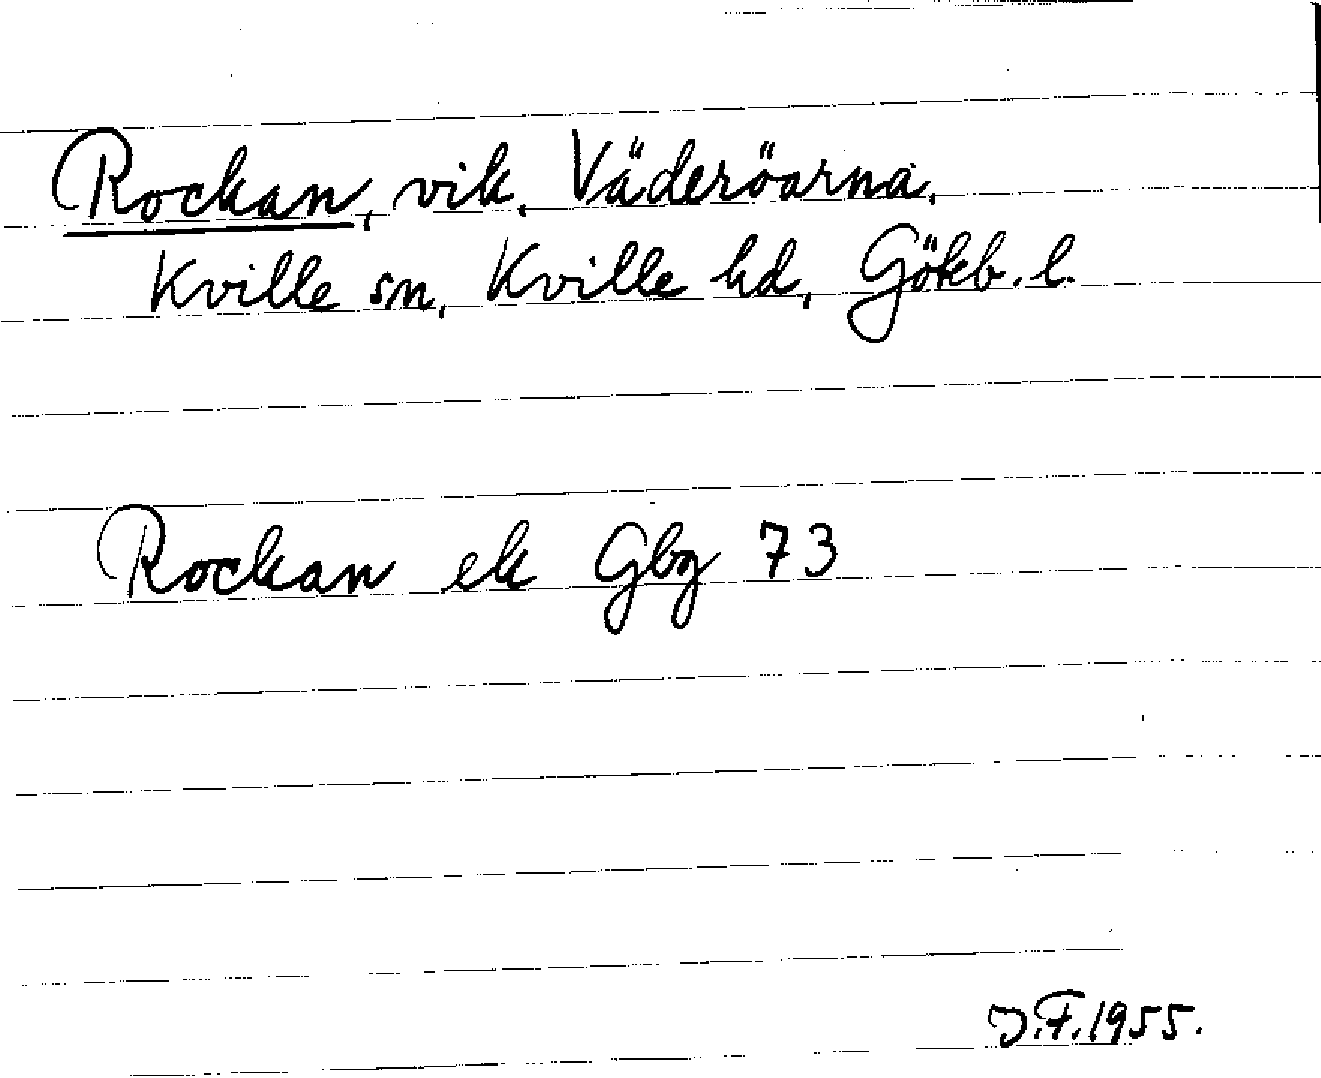 Rockan, vik, Väderöarna,
Kville sn, Kville hd, Göteb. l.
Rockan ek Gbg 73
J.F. 1955.